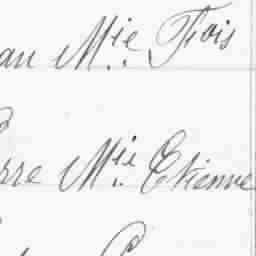 an Mie Fois
rre Mie Etienne